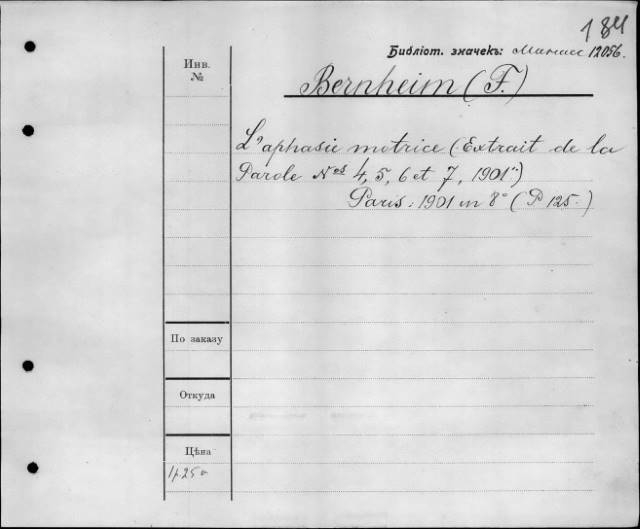 184
Библіот. значекъ: Манасс 12056.
Инв.
№
Bernheim (F.)
L'aphasie motrice (Extrait de la
Parole Nos 4, 5, 6 et 7, 1901")
Paris: 1901 in 8° (P 125.)
По заказу
Откуда
Цѣна